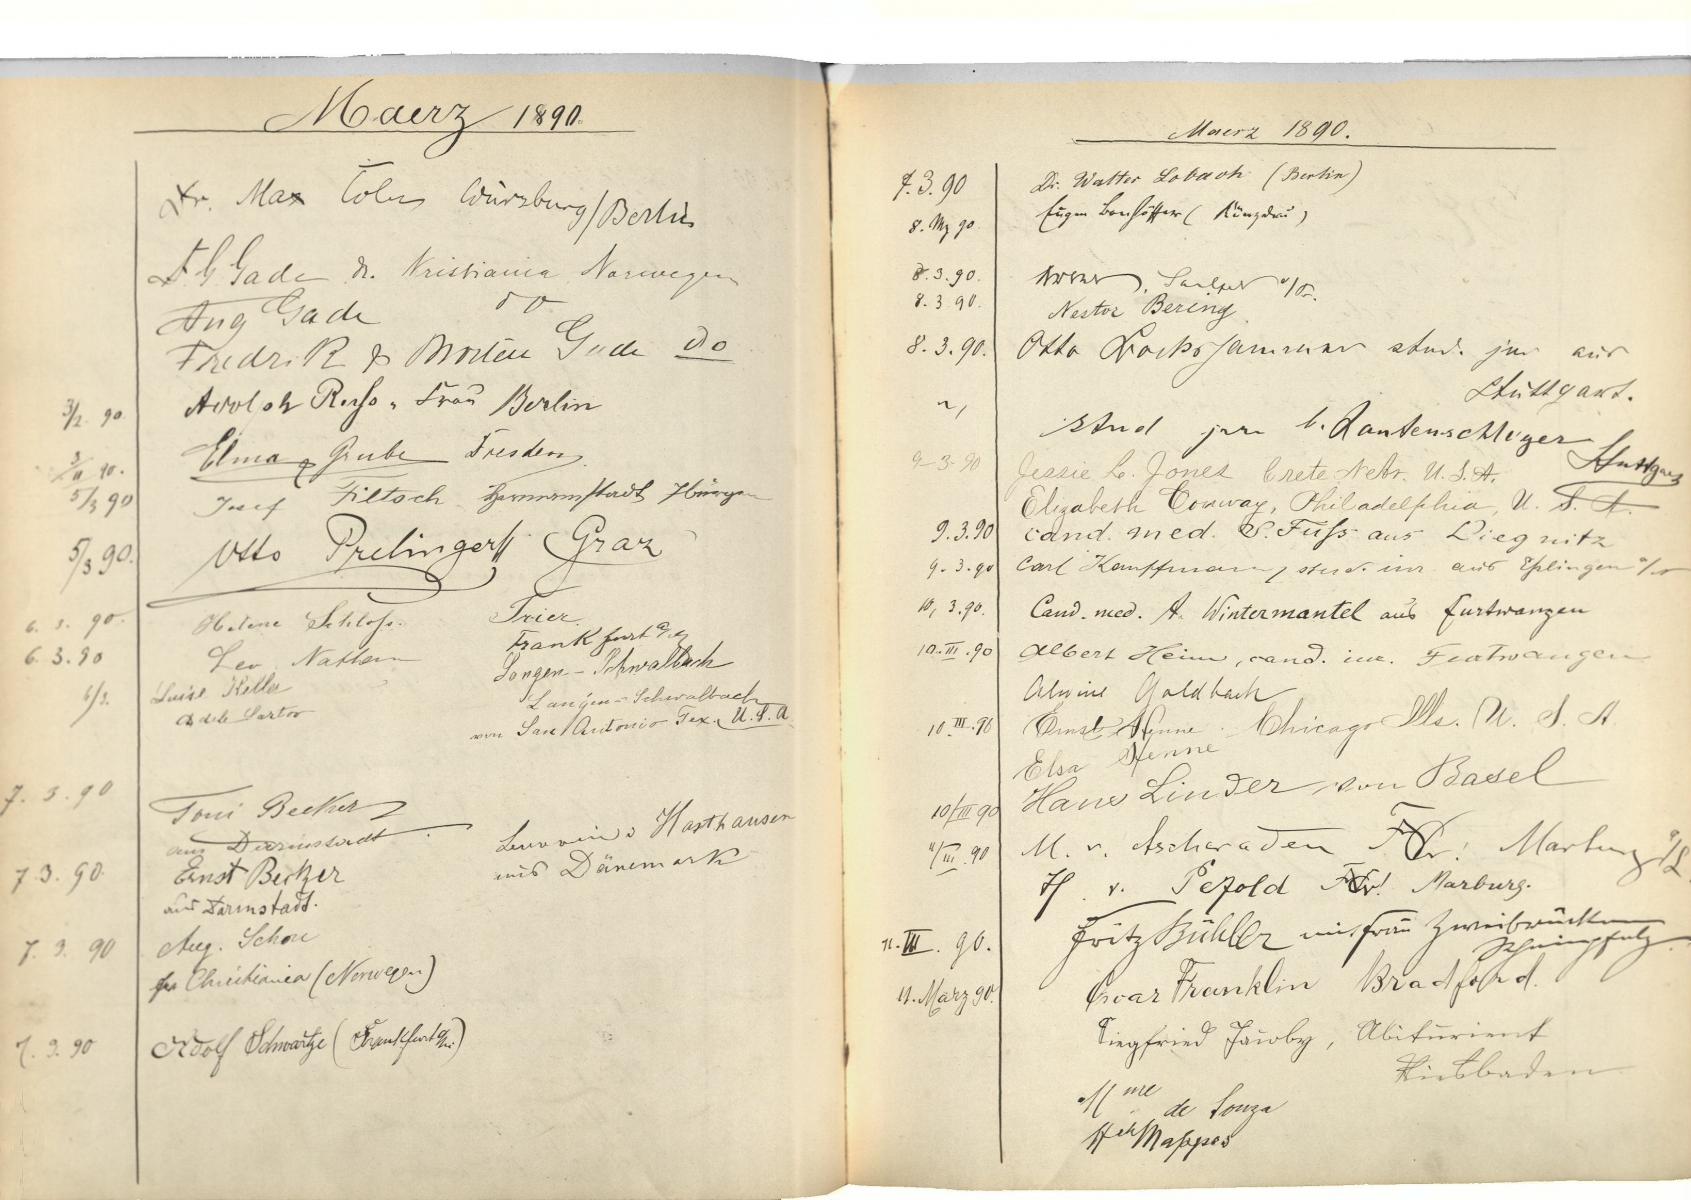 Maerz 1890.
Dr. Max Würzburg/Berlin
Gade Kristiania Norwegen
Aug Gade do
Fredrik & Morten Gade do
3/2. 90. Adolph Frau Berlin
Elma Grube Dresden
5/3 90 Josef Filtsch Hermannstadt
5/3 90. Otto Prelinger Graz
6. 3. 90. Helene Schloss. Trier.
6. 3. 90 Leo Nathan Frankfurt a/M
Langen-Schwalbach
6/3. Luise Keller Langen-Schwalbach
Adele Sartor von San Antonio Tex. U.S.A.
7. 3. 90 Toni Becker
aus Darmstadt
Hasthausen
7. 3. 90. Ernst Becker aus Dänemark
aus Darmstadt.
7. 3. 90 Aug. Schou
fra Christiania (Norwegen)
7. 3. 90 Adolf Schwartze (Frankfurt a/M)
Maerz 1890.
7. 3. 90 Dr. Walter Lobach (Berlin)
8. Mz 90. Eugen Bonhöffer
8. 3. 90.
8. 3 90. Nestor Bering
8. 3. 90. Otto stud. jur aus
Stuttgart.
stud jur Lautenschlager
Stuttgart
9-3-90 Jessie L. Jones Crete Nebr. U.S.A.
Elizabeth Conway, Philadelphia, U. S. A.
9. 3. 90 cand. med. Fuss aus Liegnitz
9. 3. 90 Carl Kauffmann, stud. iur. aus Esslingen a/N
10, 3. 90. Cand. med. A. Wintermantel aus Furtwangen
10. III. 90 Albert Heim, cand. iur. Furtwangen
Alwine Goldbach
10. III. 90 Ernst Henne Chicago Ills. U. S. A.
Elsa Henne
10/III 90 Hans Linder, von Basel
11/III. 90 M. v. Ascheraden Marburg a/L.
H. v. Pezold Marburg.
11. III. 90. Fritz Bühler mit Frau Zweibrücken
Rheinpfalz.
11. März 90. Oscar Franklin Bradford.
Siegfried Jacoby, Abiturient
Wiesbaden
Mme de Souza
Mappes